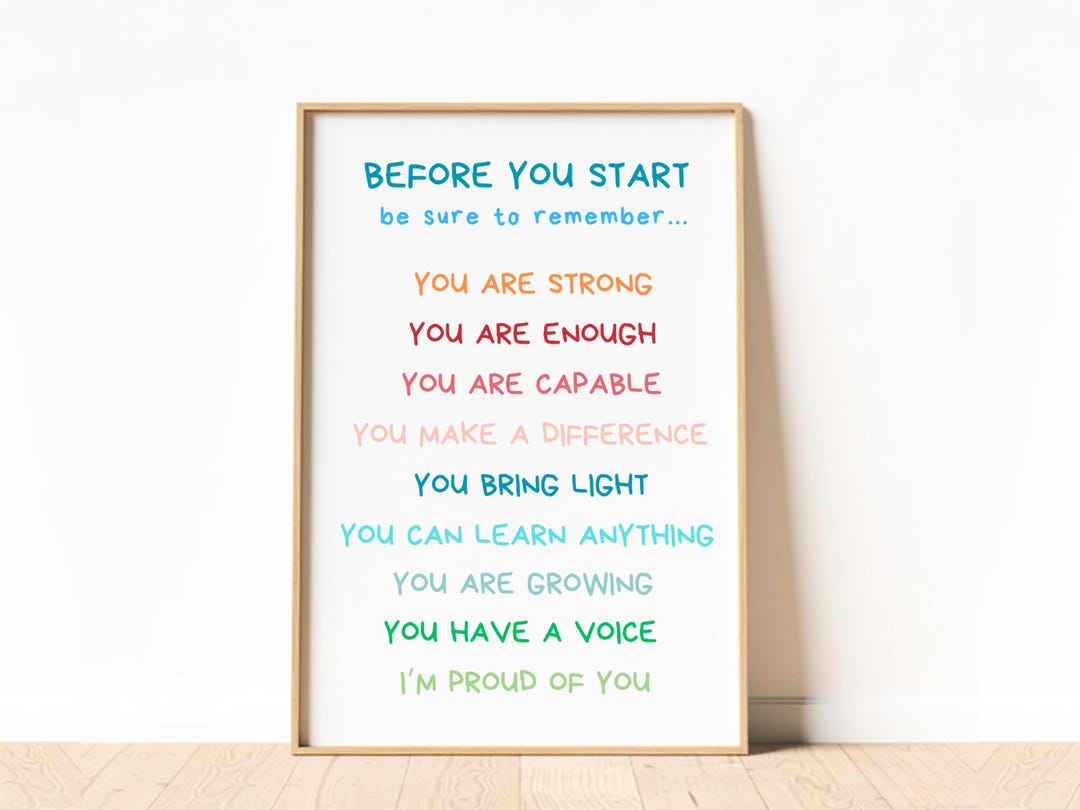 BEFORE YOU START
be sure to remember...
YOU ARE STRONG
YOU ARE ENOUGH
YOU ARE CAPABLE
YOU MAKE A DIFFERENCE
YOU BRING LIGHT
YOU CAN LEARN ANYTHING
YOU ARE GROWING
YOU HAVE A VOICE
I'M PROUD OF YOU